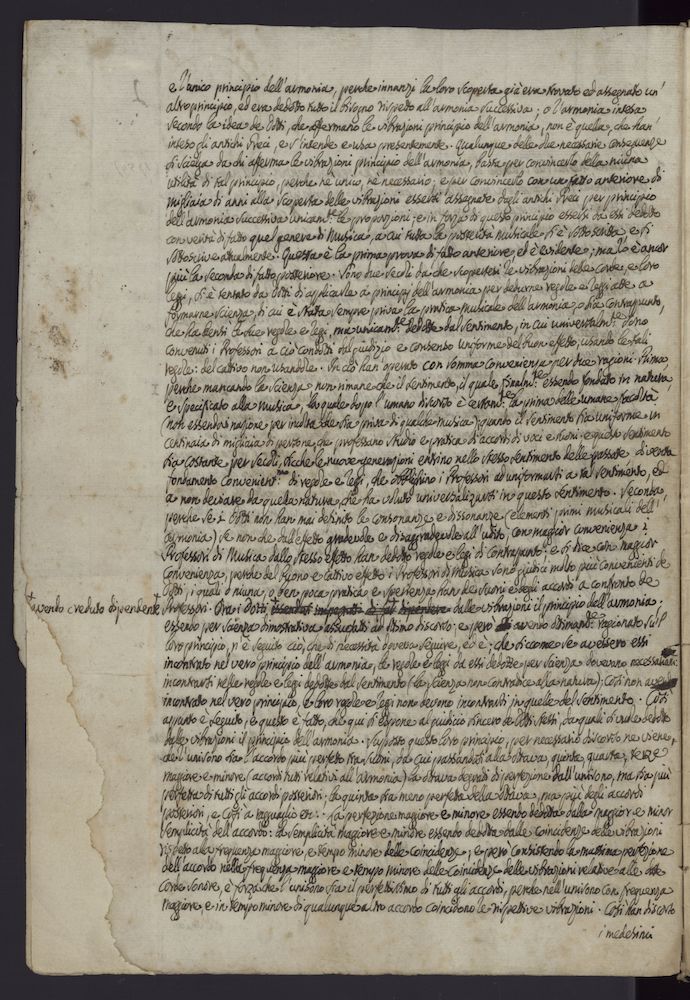 e l'unico principio dell'armonia, perche innanzi la loro scoperta già era trovato ed assegnato un'
altro principio, ed era dedotto tutto il bisogno rispetto all'armonia successiva; o l'armonia intesa
secondo la idea de Dotti, che affermano le vibrazioni principio dell'armonia, non è quella, che han'
inteso gli antichi Greci, e s'intende e usa presentemente. Qualunque delle due necessarie conseguenze
di scienza da chi afferma le vibrazioni principio dell'armonia, basta per convincerlo della niuna
utilità di tal principio, perche nè unico, nè necessario; e per convincerlo con un fatto anteriore di
migliaia di anni alla scoperta delle vibrazioni essersi assegnate dagli antichi Greci per principio
dell'armonia successiva unicam.te le proporzioni; e in forza di questo principio essersi da essi dedotto
con verità di fatto quel genere di Musica, a cui tutta la posterità musicale si è sottoscritta, e si
sottoscrive attualmente. Questa è la prima prova di fatto anteriore, ed è evidente; ma lo è ancor
più la seconda di fatto posteriore. Sono due secoli da che scopertesi le vibrazioni delle corde, e loro
leggi, si è tentato da Dotti di applicarle a principj dell'armonia per dedurne regole e leggi atte a
formarne scienza, di cui è stata sempre priva la pratica musicale dell'armonia, o sia contrapunto,
che ha bensì le due regole e leggi, ma unicam.te dedotte dal sentimento, in cui universalm.te sono
convenuti i Professori a ciò condotti dal giudizio e consenso uniforme del buon effetto, usando le tali
regole: del cattivo non usandole. In ciò han operato con somma convenienza per due ragioni. Prima
perche mancando la scienza non rimane che il sentimento, il quale finalm.te essendo fondato in natura
e specificato alla musica, la quale dopo l'umano discorso è certam.te la prima delle umane facoltà
(non essendovi nazione per inculta che sia priva di qualche musica) quando il sentimento sia uniforme in
centinaia di migliaia di persone, che professano studio e pratica di accordi di voci e suoni: e questo sentimento
sia costante per secoli, sicche le nuove generazioni entrino nello stesso sentimento delle passate diventa
fondamento convenientiss.mo di regole e leggi, che obblighino i Professori ad uniformarsi a tal sentimento, ed
a non deviare da quella natura, che ha voluto universalizzarsi in questo sentimento. Seconda,
perche se i Dotti non han mai definito le consonanze e dissonanze (elementi primi musicali dell'
armonia) se non che dall'effetto gradevole e disaggradevole all'udito, con maggior convenienza i
Professori di Musica dallo stesso effetto han dedotto regole e leggi di contrapunto: e si dice con maggior
convenienza, perche del buono e cattivo effetto i Professori di Musica sono giudici molto più convenienti de
Dotti, i quali o niuna, o ben poca pratica e sperienza han de suoni e degli accordi a confronto de
Professori. Ora i Dotti dalle vibrazioni il principio dell'armonia:
+ avendo creduto dipendente +
essendo per scienza dimostrativa assuefatti ad ottimo discorso; e però avendo ottimam.te ragionato sul
loro principio, n'è seguito ciò, che di necessità doveva seguire, ed è; che siccome se avessero essi
incontrato nel vero principio dell'armonia, le regole e leggi da essi dedotte per scienza dovevano necessariam.te
incontrarsi nelle regole e leggi dedotte dal sentimento (la scienza non contradice alla natura): così non
incontrato nel vero principio, le loro regole e leggi non devono incontrarsi in quelle del sentimento. Così
appunto è seguito, e questo è fatto, che qui si espone al giudicio sincero de Dotti stessi, da quali si vuole dedotto
dalle vibrazioni il principio dell'armonia. Supposto questo loro principio, per necessario discorso ne viene,
che l'unisono sia l'accordo più perfetto tra suoni, da cui passandosi alla ottava, quinta, quarta, terze
maggiore e minore (accordi tutti relativi all'armonia) la ottava degradi di perfezione dall'unisono, ma sia più
perfetta di tutti gli accordi posteriori: la quinta sia meno perfetta della ottava, ma più degli accordi
posteriori, e così a ragguaglio etc. La perfezione maggiore e minore essendo dedotta dalla maggior e minor
semplicità dell'accordo: la semplicità maggiore e minore essendo dedotta dalle coincidenze delle vibrazioni
rispetto alla frequenza maggiore, e tempo minore delle coincidenze; e però consistendo la massima perfezione
dell'accordo nella frequenza maggiore e tempo minore delle coincidenze delle vibrazioni relative alle date
corde sonore, è forza che l'unisono sia il perfettissimo di tutti gli accordi, perche nell'unisono con frequenza
maggiore, e in tempo minore di qualunque altro accordo coincidono le rispettive vibrazioni. Così han discorso
i medesimi